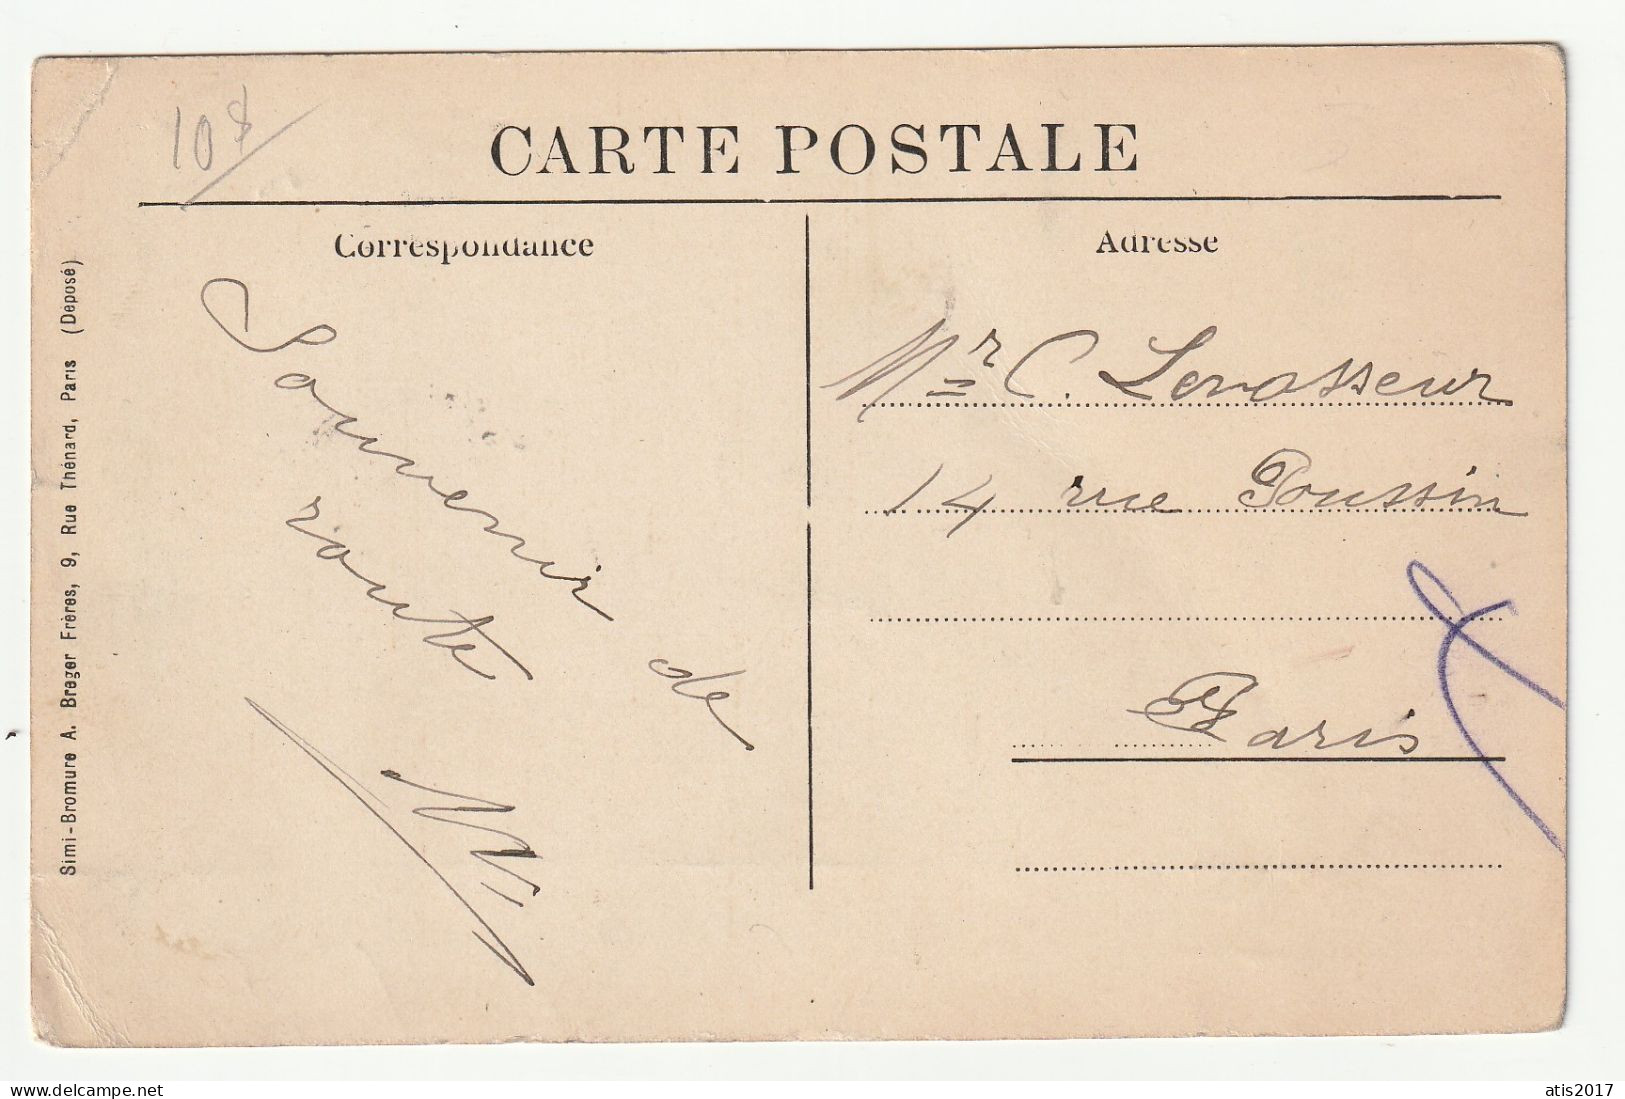 108
CARTE POSTALE
Correspondance
Adresse
Souvenir de
route
Mr C. Levasseur
14 rue Poussin
Paris
Simi-Bromure A. Breger Frères, 9, Rue Thénard, Paris (Déposé)
delcampe.net
atis2017